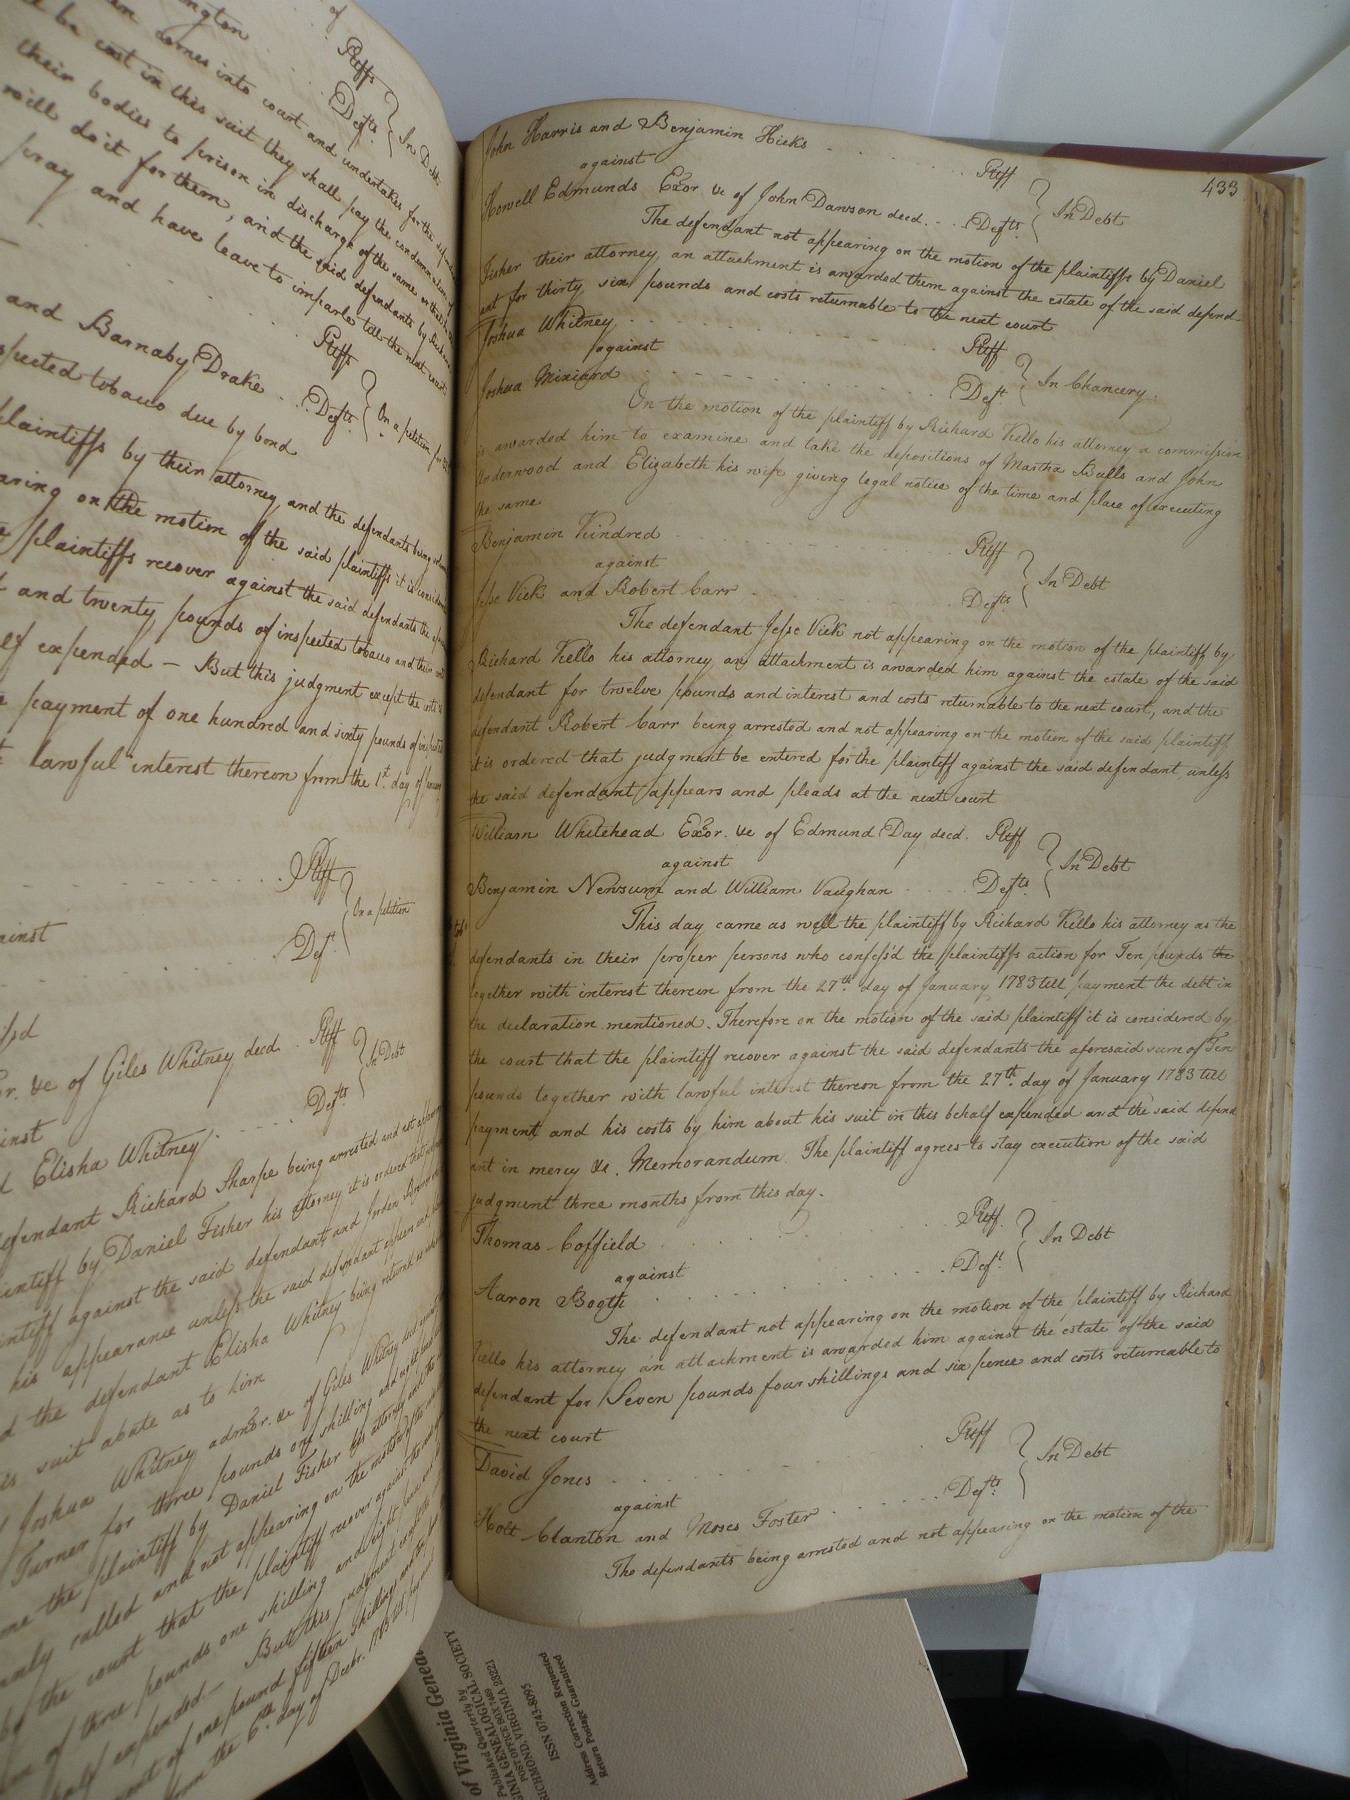 ington
of
Pltffs
Defts
In Debt
comes into court and undertakes for the
be cast in this suit they shall pay the condemnation of
their bodies to prison in discharge of the same or that he
will do it for them, and the said defendants by
pray and have leave to imparle till the next court
Pltffs
and Barnaby Drake Defts
On a petition for
inspected tobacco due by bond
plaintiffs by their attorney and the defendants being
on the motion of the said plaintiffs it is considered
plaintiffs recover against the said defendants the
and twenty pounds of inspected tobacco and their costs
expended — But this judgment except the costs is
payment of one hundred and sixty pounds of inspected
lawful interest thereon from the 1st. day of January
Pltff
On a petition
against
Deft.
&c of Giles Whitney decd Pltff
In Debt
against
Defts
Elisha Whitney
defendant Richard Sharpe being arrested and not appearing
plaintiff by Daniel Fisher his attorney it is ordered that
plaintiff against the said defendant and
his appearance unless the said defendant
the defendant Elisha Whitney being returned
suit abate as to him
Joshua Whitney admor. &c of Giles Whitney decd
Turner for three pounds one shilling and eight
the plaintiff by Daniel Fisher his attorney and the
called and not appearing on the motion of the
the court that the plaintiff recover against the
of three pounds one shilling and eight
half expended — But this judgment
of one pound fifteen shillings and
from the 6th. day of Decbr. 1783 till
433
John Harris and Benjamin Hicks Pltff
against In Debt
Howell Edmunds Exor &c of John Dawson decd. Defts.
The defendant not appearing on the motion of the plaintiffs by Daniel
Fisher their attorney, an attachment is awarded them against the estate of the said defend-
ant for thirty six pounds and costs returnable to the next court
Joshua Whitney Pltff
against In Chancery
Joshua Miniard Deft.
On the motion of the plaintiff by Richard Kello his attorney a commission
is awarded him to examine and take the depositions of Martha Bulls and John
Underwood and Elizabeth his wife giving legal notice of the time and place of executing
the same
Benjamin Kindred Pltff
against In Debt
Jesse Vick and Robert Carr Defts
The defendant Jesse Vick not appearing on the motion of the plaintiff by
Richard Kello his attorney an attachment is awarded him against the estate of the said
defendant for twelve pounds and interest and costs returnable to the next court, and the
defendant Robert Carr being arrested and not appearing on the motion of the said plaintiff
it is ordered that judgment be entered for the plaintiff against the said defendant, unless
the said defendant appears and pleads at the next court
William Whitehead Exor. &c of Edmund Day decd. Pltff
against In Debt
Benjamin Newsum and William Vaughan Defts.
This day came as well the plaintiff by Richard Kello his attorney as the
defendants in their proper persons who confess'd the plaintiffs action for Ten pounds the
together with interest thereon from the 27th. day of January 1783 till payment the debt in
the declaration mentioned. Therefore on the motion of the said plaintiff it is considered by
the court that the plaintiff recover against the said defendants the aforesaid sum of Ten
pounds together with lawful interest thereon from the 27th. day of January 1783 till
payment and his costs by him about his suit in this behalf expended and the said defend
ant in mercy &c. Memorandum The plaintiff agrees to stay execution of the said
judgment three months from this day.
Thomas Coffield Pltff.
against In Debt
Aaron Booth Deft.
The defendant not appearing on the motion of the plaintiff by Richard
Kello his attorney an attachment is awarded him against the estate of the said
defendant for Seven pounds four shillings and six pence and costs returnable to
the next court
David Jones Pltff
against In Debt
Holt Clanton and Moses Foster Defts.
The defendants being arrested and not appearing on the motion of the
of Virginia Geneal
Published Quarterly by
GINIA GENEALOGICAL SOCIETY
POST OFFICE BOX 1469
RICHMOND, VIRGINIA 23221
ISSN 0743-8095
Address Correction Requested
Return Postage Guaranteed